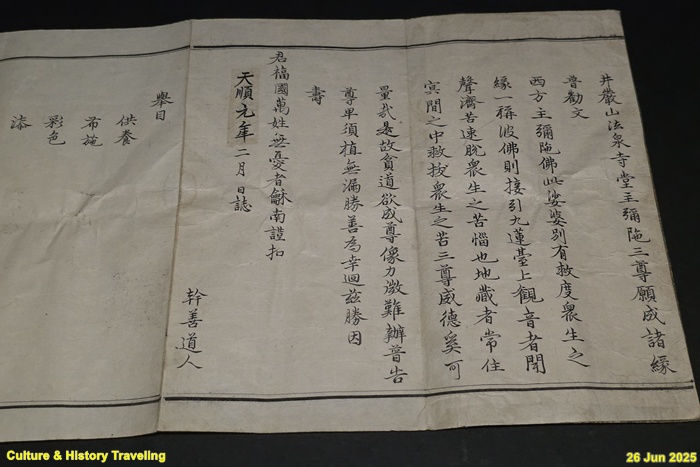 井巖山法泉寺堂主彌陁三尊願成諸緣
普勸文
西方主彌陁佛此娑婆別有救度衆生之
緣一稱彼佛則接引九蓮臺上觀音者聞
聲濟苦速脫衆生之苦惱也地藏者常住
冥間之中救拔衆生之苦三尊威德奚可
量哉是故貧道欲成尊像力㣲難辦普告
尊卑須植無漏勝善為幸迴玆勝因
壽
君福國萬姓無憂者龢南謹扣
天順元年二月日誌
幹善道人
舉目
供養
布施
彩色
漆
Culture & History Traveling
26 Jun 2025